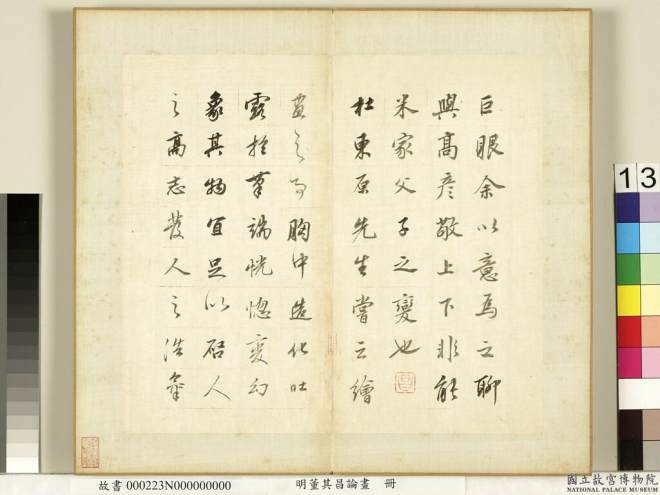 巨眼余以意為之聊
與高彥敬上下非能
米家父子之變也
杜東原先生嘗云繪
畫之事胸中造化吐
露於筆端恍惚變幻
象其物宜足以啓人
之高志發人之浩氣
13
故書 000223N000000000
明董其昌論畫 冊
國立故宮博物院
NATIONAL PALACE MUSEUM